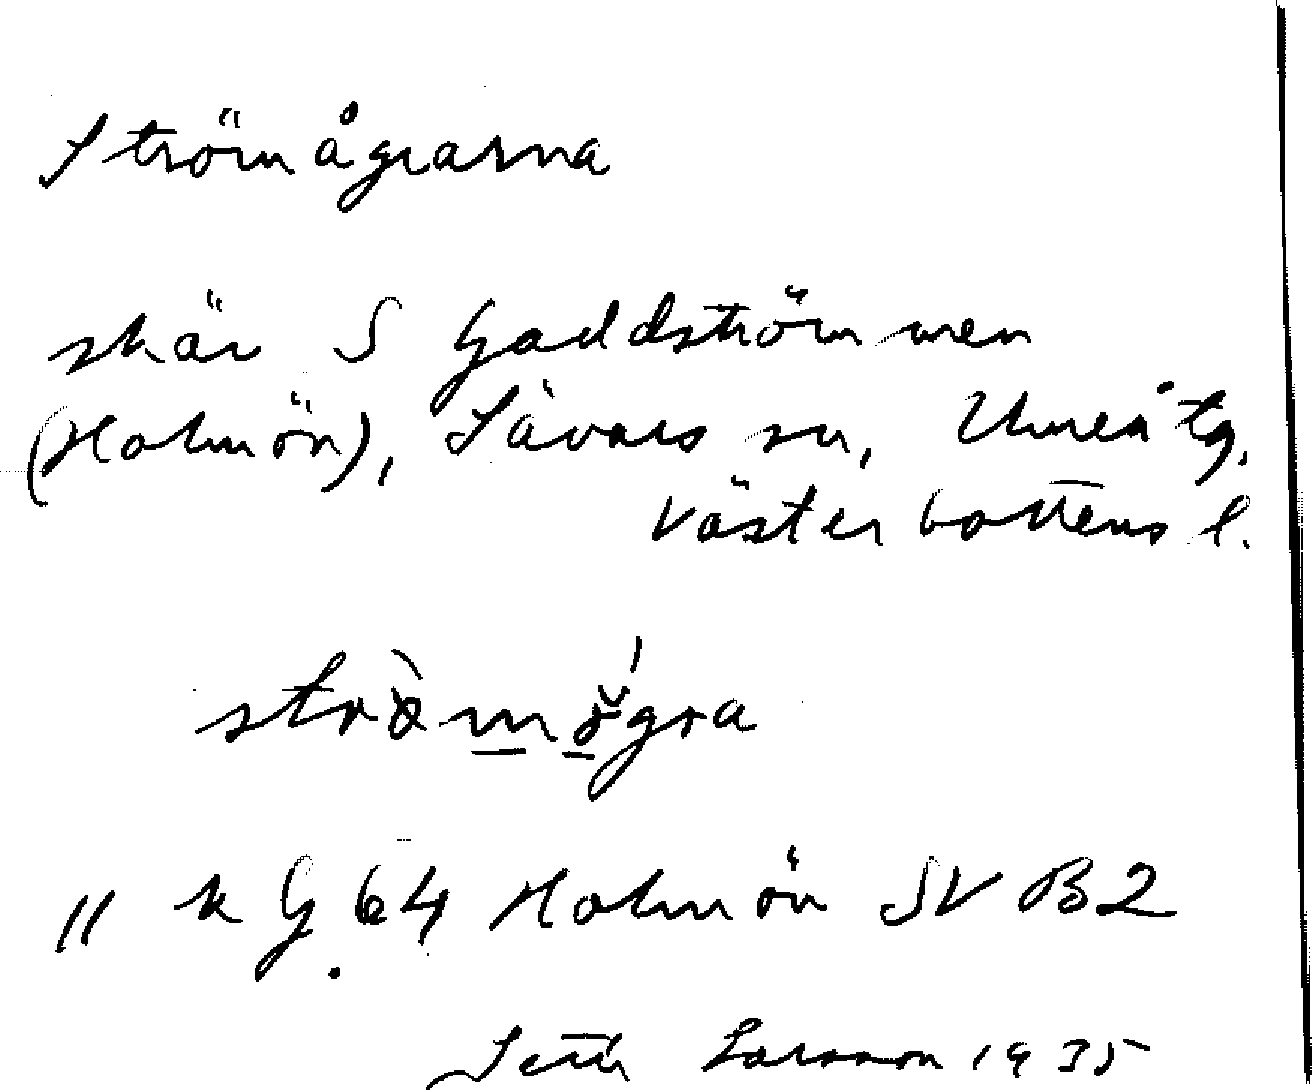 Strömågrarna
skär S Gaddströmmen
(Holmön), Sävars sn, Umeå tg.
Västerbottens l.
strö̀mŏ́gra
" k G. 64 Holmön SV B2
Seth Larsson 1935